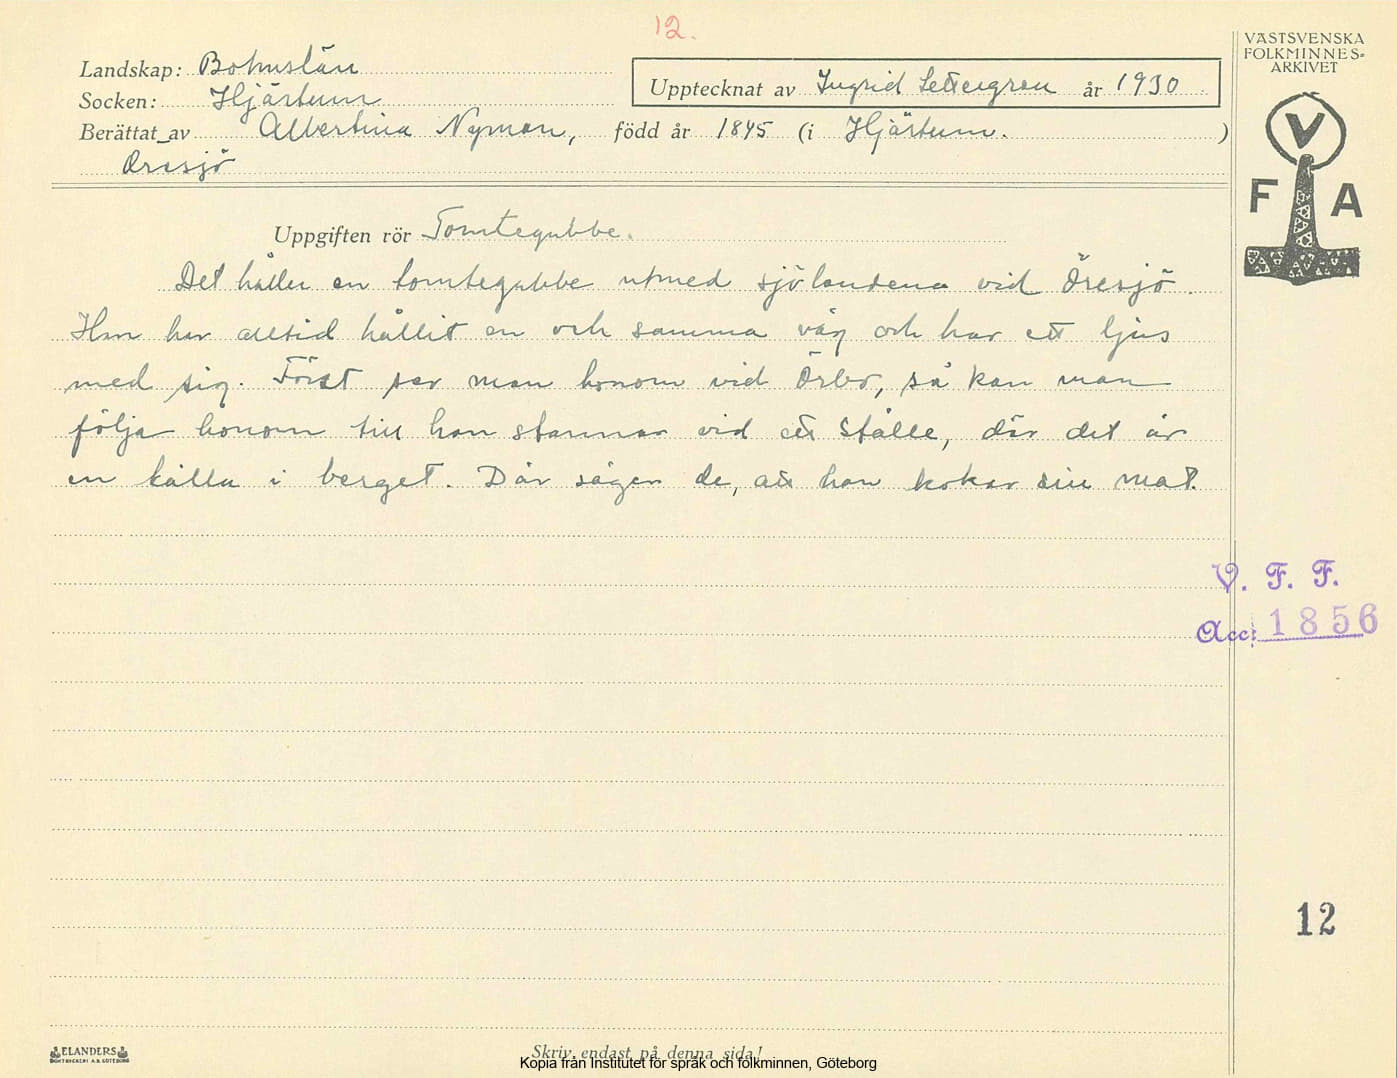 12.
VÄSTSVENSKA
FOLKMINNES=
ARKIVET
V
F A
Landskap: Bohuslän
Socken: Hjärtum
Upptecknat av Ingrid Settergren år 1930
Berättat av Albertina Nyman, född år 1845 (i Hjärtum. )
Öresjö
Uppgiften rör Tomtegubbe.
Det håller en tomtegubbe utmed sjölandena vid Öresjö.
Han har alltid hållit en och samma väg och har ett ljus
med sig. Först ser man honom vid Örbo, så kan man
följa honom till han stannar vid ett ställe, där det är
en källa i berget. Där säger de, att han kokar sin mat.
V. F. F.
Acc: 1856
12
ELANDERS
BOKTRYCKERI A.B. GÖTEBORG
Skriv endast på denna sida!
Kopia från Institutet för språk och folkminnen, Göteborg